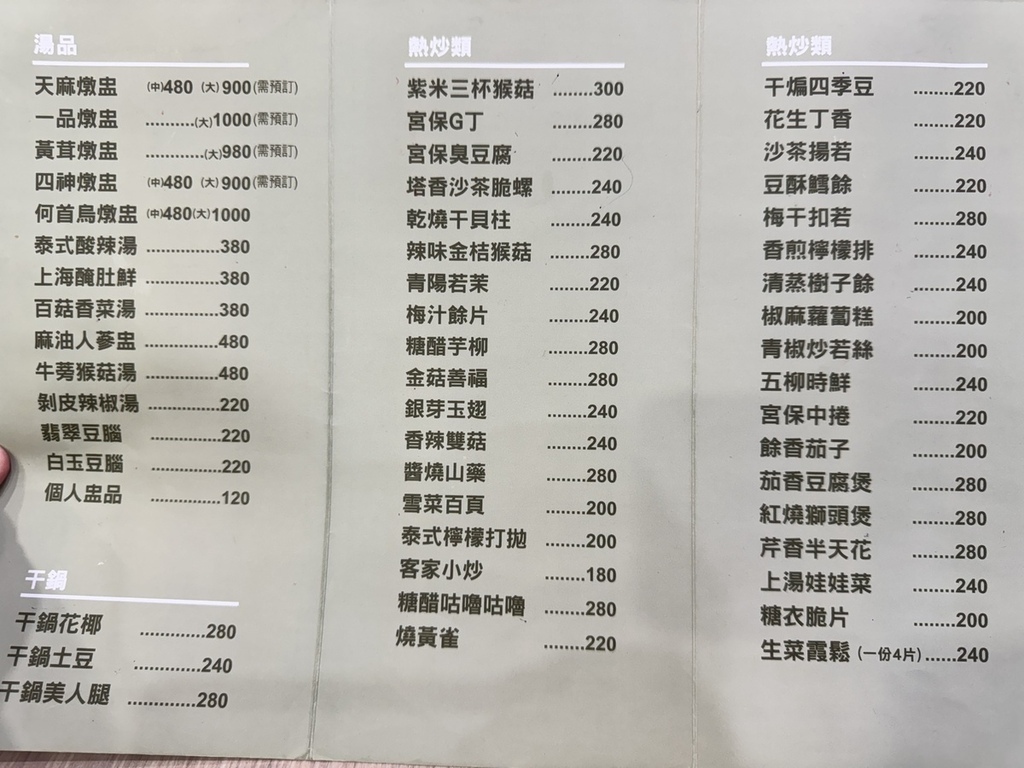 湯品
天麻燉盅 (中)480 (大)900(需預訂)
一品燉盅 ..........(大)1000(需預訂)
黃茸燉盅 ............(大)980(需預訂)
四神燉盅 (中)480 (大)900(需預訂)
何首烏燉盅 (中)480(大)1000
泰式酸辣湯 ...............380
上海醃肚鮮 ...............380
百菇香菜湯 ...............380
麻油人蔘盅 ...............480
牛蒡猴菇湯 ...............480
剝皮辣椒湯 ...............220
翡翠豆腦 ...............220
白玉豆腦 ...............220
個人盅品 ...............120
干鍋
干鍋花椰 ..............280
干鍋土豆 ..............240
干鍋美人腿 ..............280
熱炒類
紫米三杯猴菇 ........300
宮保G丁 ........280
宮保臭豆腐 ........220
塔香沙茶脆螺 ........240
乾燒干貝柱 ........240
辣味金桔猴菇 ........280
青陽若茉 ........220
梅汁餘片 ........240
糖醋芋柳 ........280
金菇善福 ........280
銀芽玉翅 ........240
香辣雙菇 ........240
醬燒山藥 ........280
雪菜百頁 ........200
泰式檸檬打拋 ........200
客家小炒 ........180
糖醋咕嚕咕嚕 ........280
燒黃雀 ........220
熱炒類
干煸四季豆 ........220
花生丁香 ........220
沙茶揚若 ........240
豆酥鱈餘 ........220
梅干扣若 ........280
香煎檸檬排 ........240
清蒸樹子餘 ........240
椒麻蘿蔔糕 ........200
青椒炒若絲 ........200
五柳時鮮 ........240
宮保中捲 ........220
餘香茄子 ........200
茄香豆腐煲 ........280
紅燒獅頭煲 ........280
芹香半天花 ........280
上湯娃娃菜 ........240
糖衣脆片 ........200
生菜霞鬆 (一份4片)......240